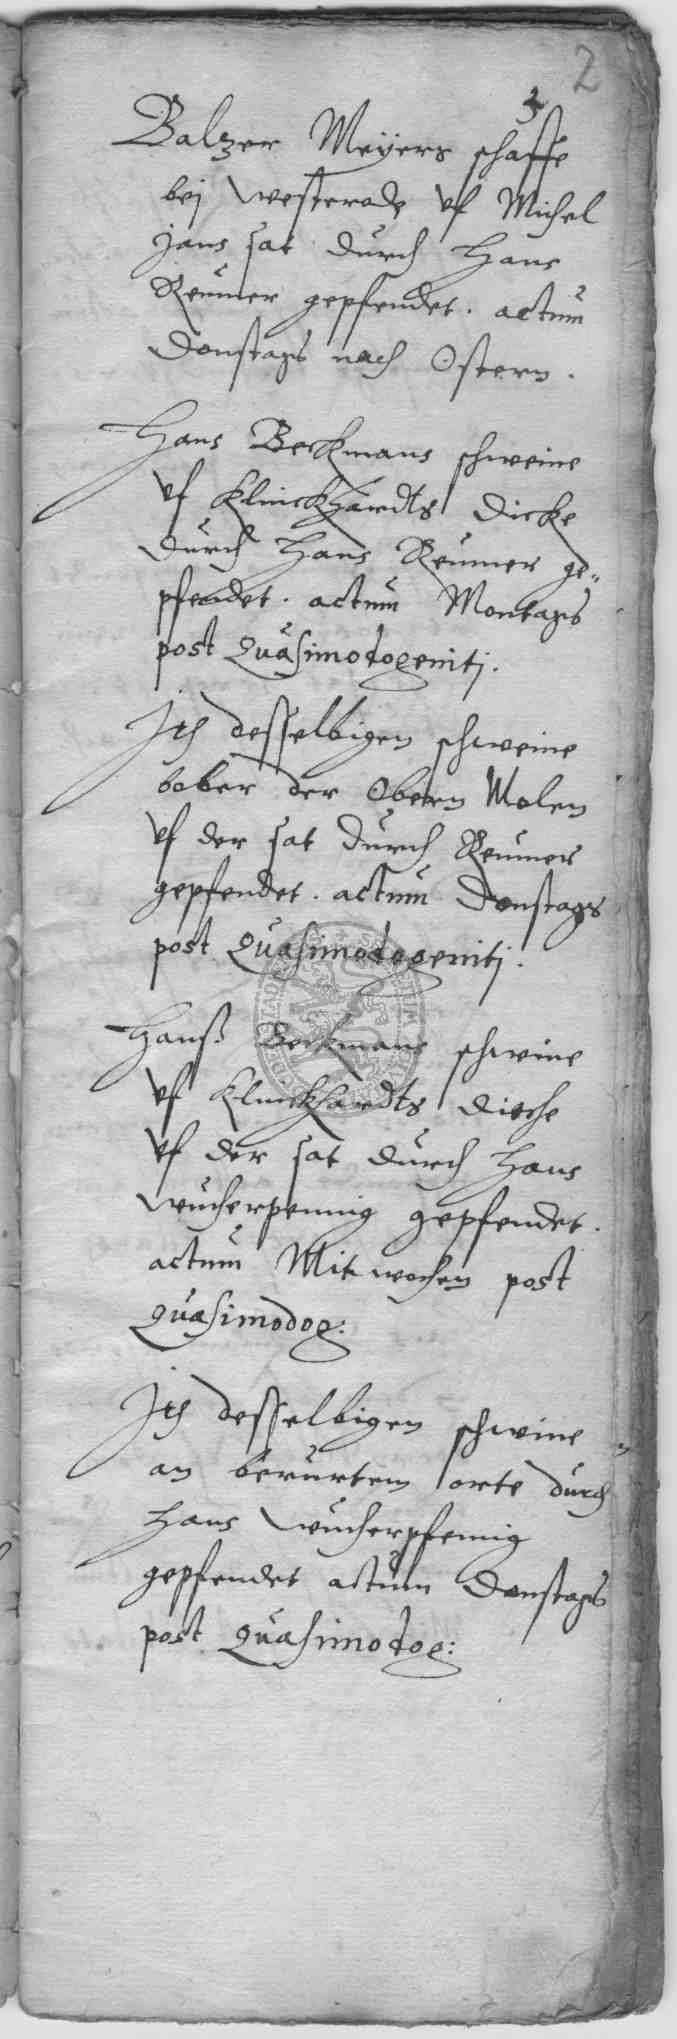 2
3
Balzer Meÿers schaffe
bej Westerode uf Michel
Jans sat durch Hans
Reumer gepfendet. actum
Donstags nach Ostern.
Hans Beckmans schweine
uf Klinckhardts Dicke
durch Hans Reumer ge„
pfendet. actum Montags
post Quasimodogenitj.
Jtem desselbigen schweine
bober der Obern Molen
uf der sat durch Reumer
gepfendet. actum Donstags
post Quasimodogenitj.
Hanß Beckmans schwine
uf Klinckhardts Dieche
uf der sat durch Hans
Wucherpennig gepfendet.
actum Mitwochen post
Quasimodog:
Jtem desselbigen schwine
an berurtem orte durch
Hans Wucherpfennig
gepfendet actum Donstags
post Quasimodog: